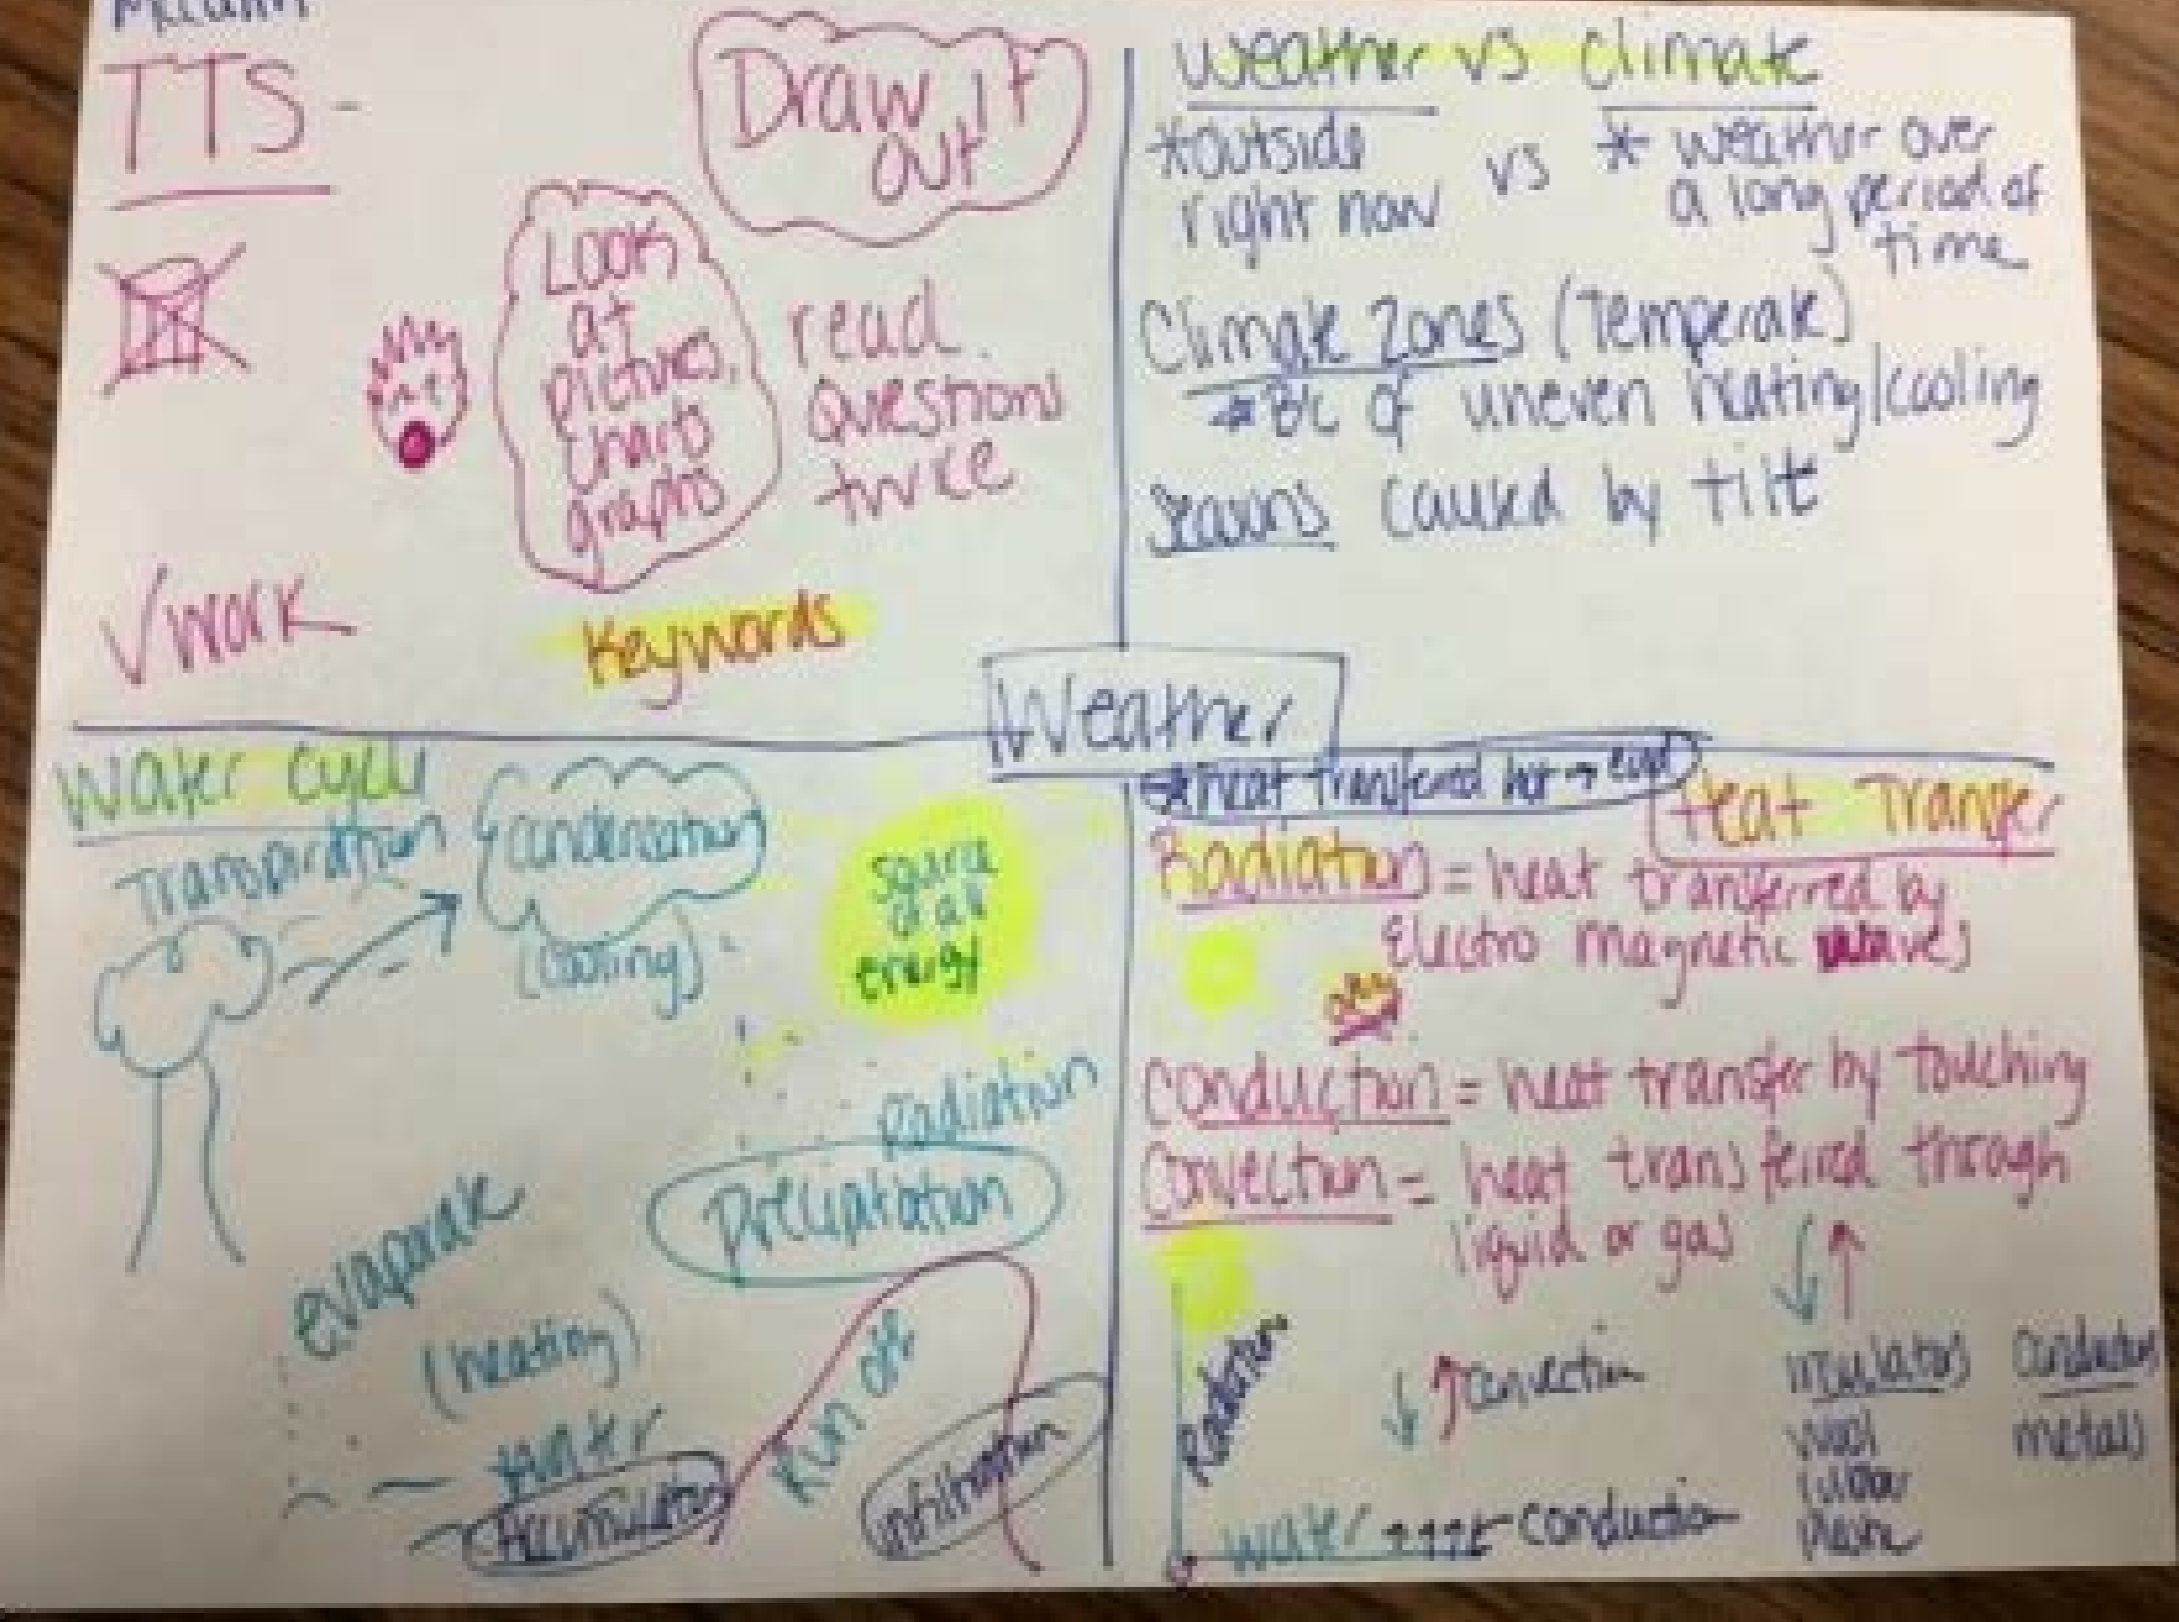 TTS-
Draw it
out
Look
at
pictures,
charts
graphs
read
Questions
twice
√work
Keywords
Weather vs Climate
*outside
right now
vs
* weather over
a long period of
time
Climate Zones (Temperate)
*BC of uneven heating/cooling
Seasons caused by tilt
Weather
Water Cycle
Transpiration
condensation
(cooling)
source
of all
energy
Radiation
Precipitation
evaporate
(heating)
water
Accumulation
Run off
infiltration
*heat transferred hot → cold
Heat Transfer
Radiation = heat transferred by
Electro magnetic waves
Conduction = heat transfer by touching
Convection = heat transferred through
liquid or gas
↓↑
Radiation
↓↑convection
water
conduction
insulators
wool
rubber
plastic
conductors
metals